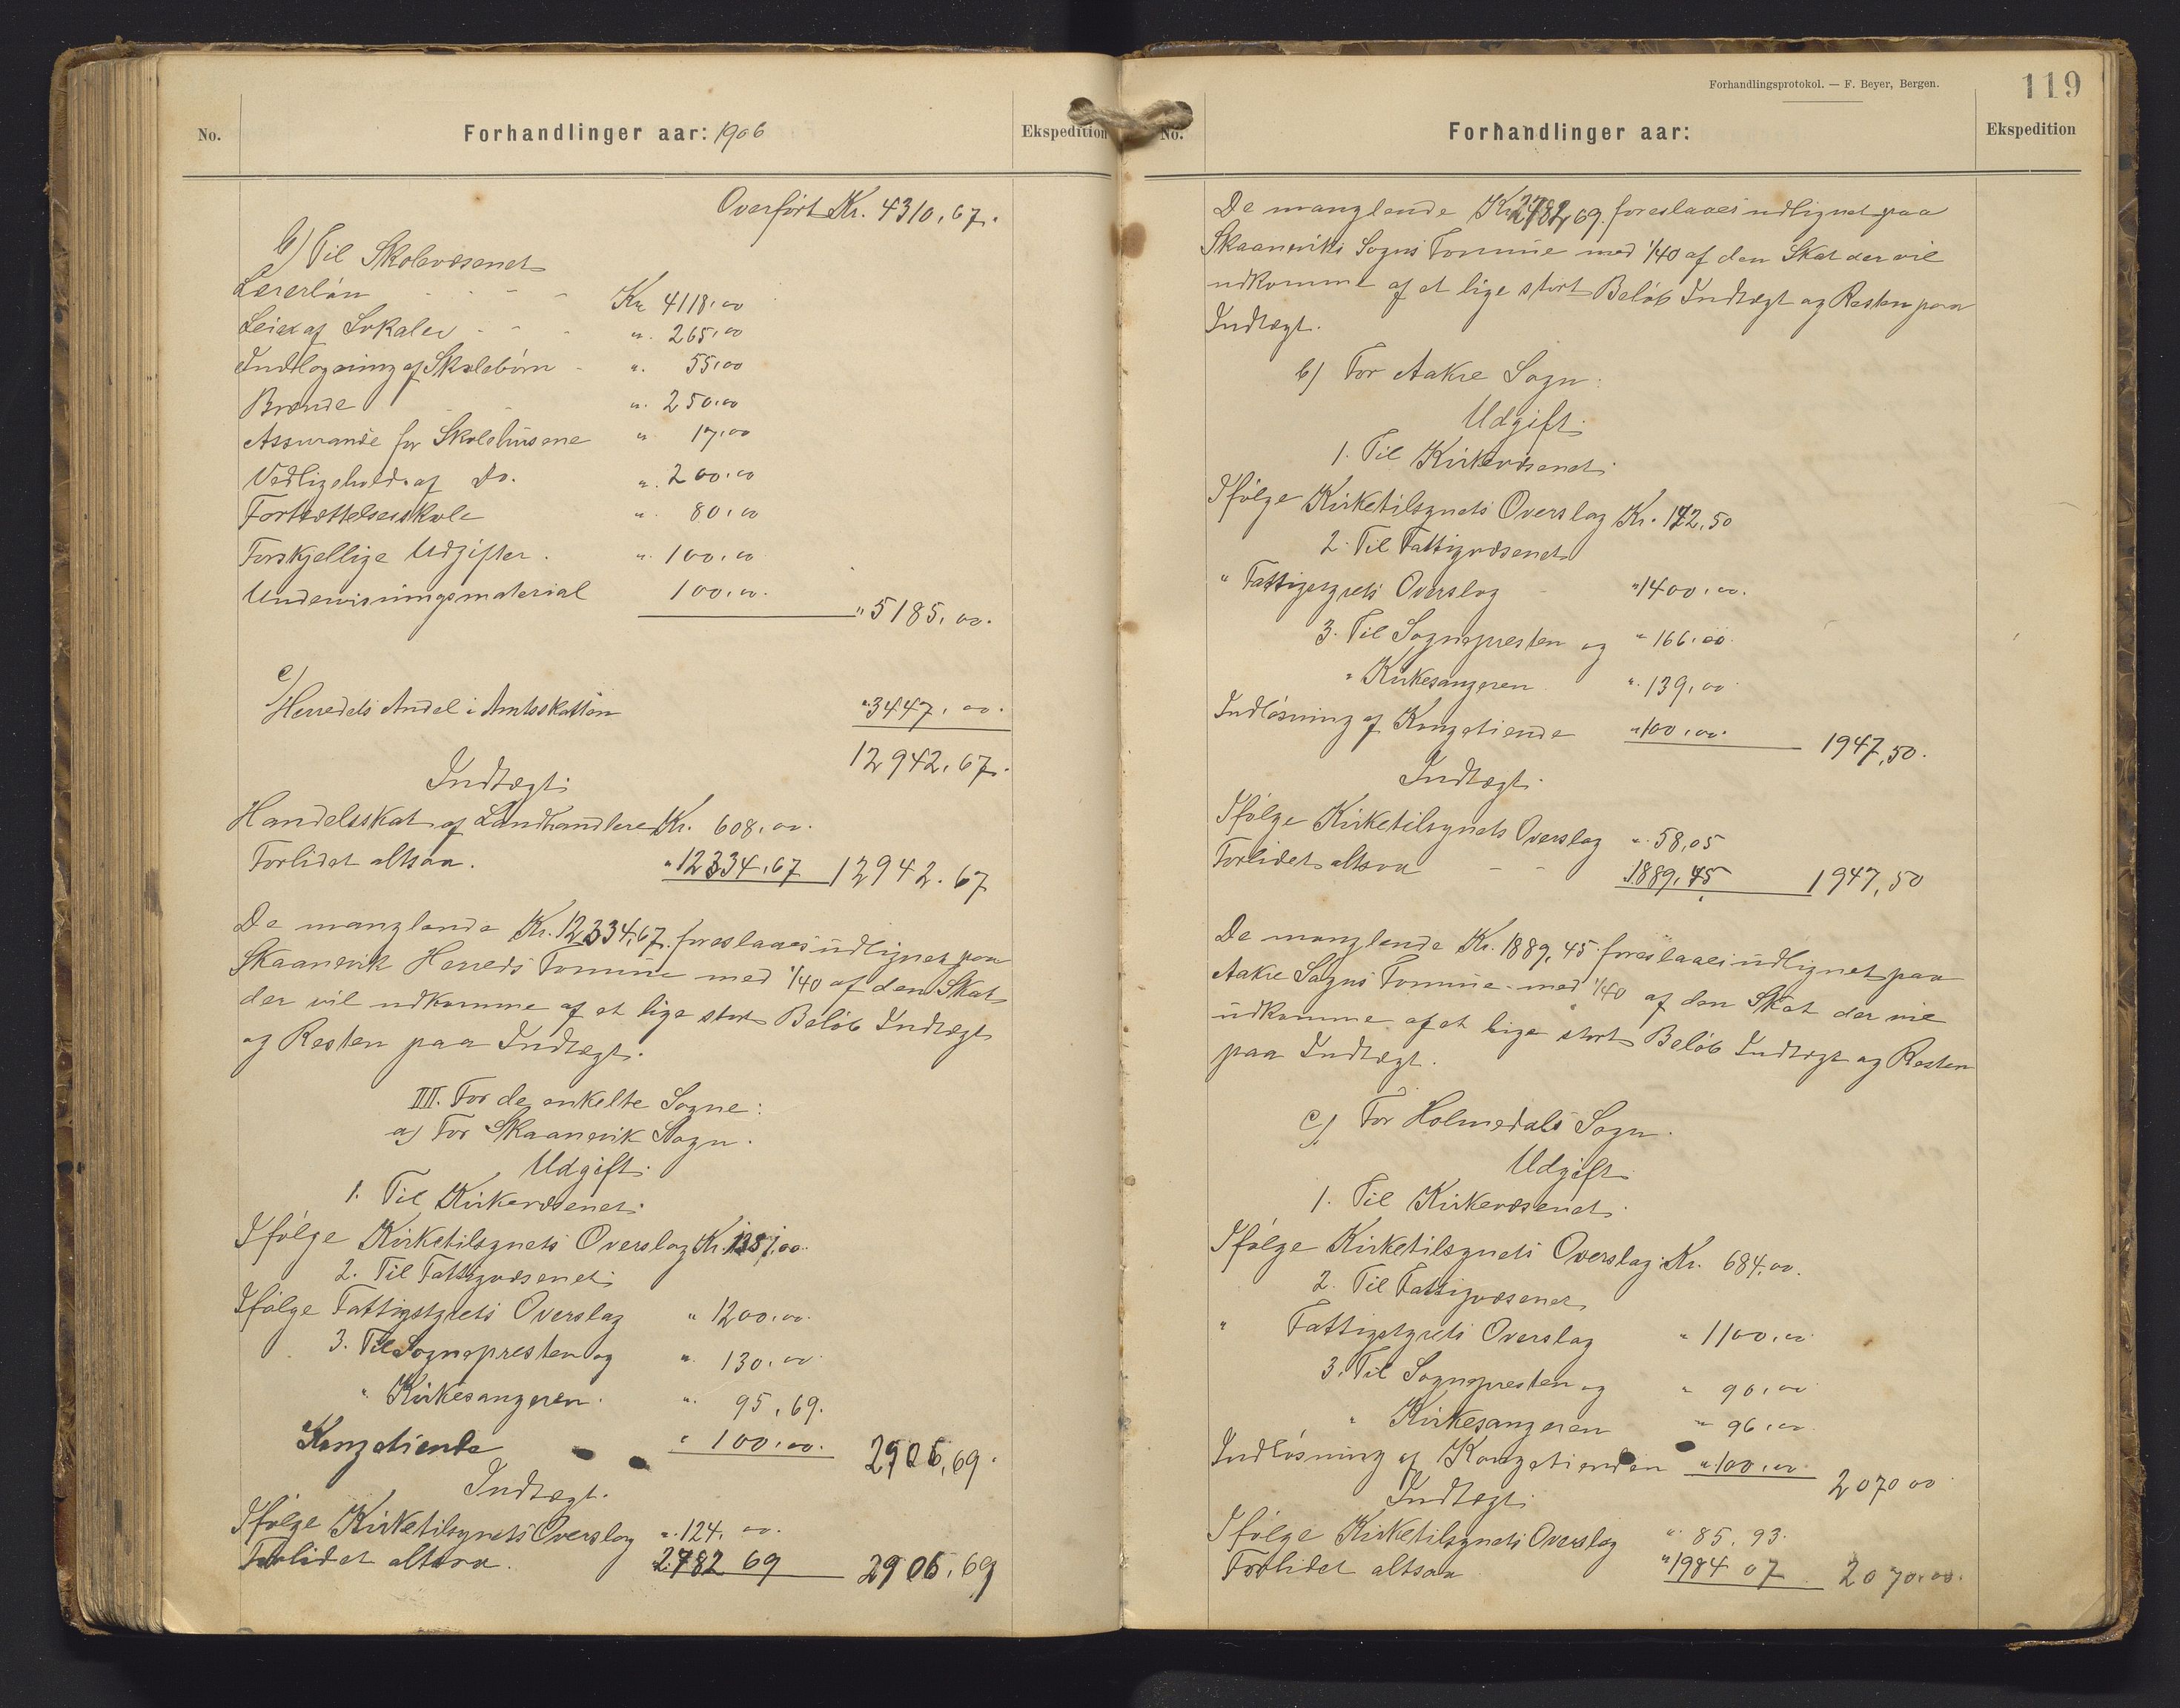 No.
Forhandlinger aar: 1906
Ekspedition
Overført Kr. 4310,67.
b) Til Skolevæsenet
Lærerløn - - - Kr 4118,00
Leie af Lokaler - - - " 265,00
Indlogering af Skolebørn - " 55,00
Brænde - - " 250,00
Assurance for Skolehusene " 17,00
Vedligehold af Do. " 200,00
Fortsættelsesskole " 80,00
Forskjellige Udgifter. " 100,00
Undervisningsmaterial 100,00. " 5185,00.
c) Herredets Andel i Amtsskatten " 3447,00.
12942,67.
Indtægt:
Handelsskat af Landhandlere Kr. 608,00.
Forlidet altsaa. " 12334,67 12942.67
De manglende Kr. 12334,67. foreslaaes udlignet paa
Skaanevik Herreds Formue med 1/40 af den Skat
der vil udkomme af et lige stort Beløb Indtægt
og Resten paa Indtægt.
III. For de enkelte Sogne:
a) For Skaanevik Sogn.
Udgift:
1. Til Kirkevæsenet:
Ifølge Kirketilsynets Overslag Kr. 1381,00.
2. Til Fattigvæsenet:
Ifølge Fattigstyrets Overslag " 1200,00.
3. Til Sognepresten og " 130,00
" Kirkesangeren. " 95,69.
Kongetiende " 100,00. 2906,69.
Indtægt.
Ifølge Kirketilsynets Overslag " 124,00.
Forlidet altsaa. 2782 69 2906,69
Forhandlingsprotokol. — F. Beyer, Bergen.
119
No.
Forhandlinger aar:
Ekspedition
De manglende Kr 2782,69. foreslaaes udlignet paa
Skaaneviks Sogns Formue med 1/40 af den Skat der vil
udkomme af et lige stort Beløb Indtægt og Resten paa
Indtægt.
b) For Aakre Sogn:
Udgift:
1. Til Kirkevæsenet:
Ifølge Kirketilsynets Overslag Kr. 142,50
2. Til Fattigvæsenet
" Fattigstyrets Overslag - " 1400,00.
3. Til Sognepresten og " 166,00.
" Kirkesangeren " 139,00
Indløsning af Kongetiende " 100,00. 1947,50.
Indtægt:
Ifølge Kirketilsynets Overslag " 58,05
Forlidet altsaa - - 1889,45 1947,50
De manglende Kr. 1889,45 foreslaaes udlignet paa
Aakre Sogns Formue med 1/40 af den Skat der vil
udkomme af et lige stort Beløb Indtægt og Resten
paa Indtægt.
c) For Holmedals Sogn.
Udgift:
1. Til Kirkevæsenet:
Ifølge Kirketilsynets Overslag Kr. 684,00.
2. Til Fattigvæsenet
" Fattigstyrets Overslag " 1100,00
3. Til Sognepresten og " 90,00
" Kirkesangeren " 96,00
Indløsning af Kongetienden " 100,00 2070 00
Indtægt:
Ifølge Kirketilsynets Overslag " 85,93.
Forlidet altsaa " 1984 07 2070,00.